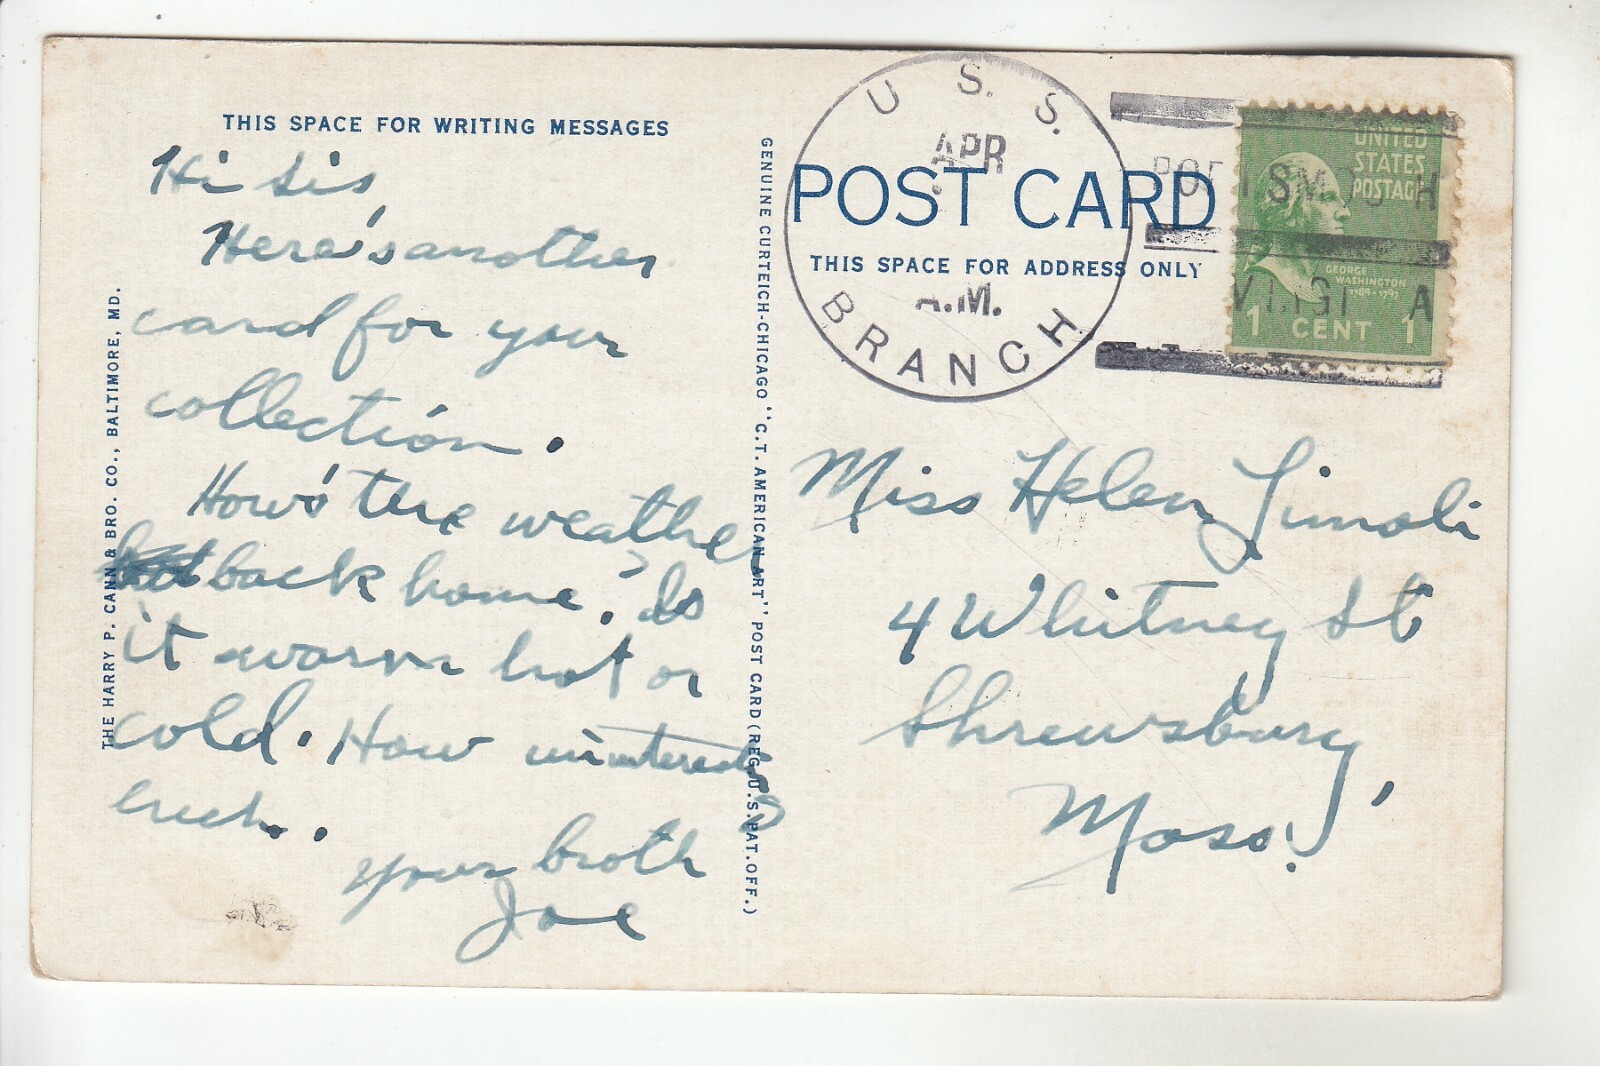 THIS SPACE FOR WRITING MESSAGES
Hi Sis,
Here's another
card for your
collection.
How's the weather
back home? Is
it warm hot or
cold. How uninteresting
eueh..
your broth
Joe
THE HARRY P. CANN & BRO. CO., BALTIMORE, MD.
GENUINE CURTEICH-CHICAGO "C.T. AMERICAN ART" POST CARD (REG. U.S. PAT. OFF.)
U.S.S. BRANCH
APR
A.M.
POST CARD
THIS SPACE FOR ADDRESS ONLY
UNITED
STATES
POSTAGE
GEORGE
WASHINGTON
1789-1797
1 CENT 1
Miss Helen Limoli
4 Whitney St
Shrewsbury,
Mass.